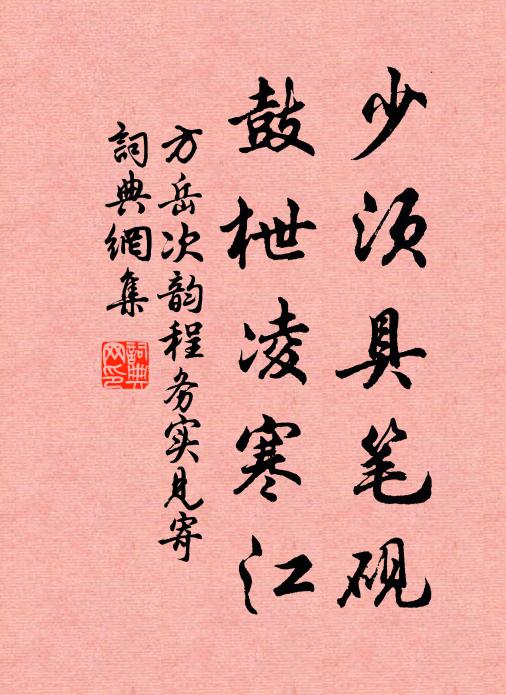 少须具笔砚
鼓枻凌寒江
方岳次韵程务实见寄
詞典網集
詞典網印